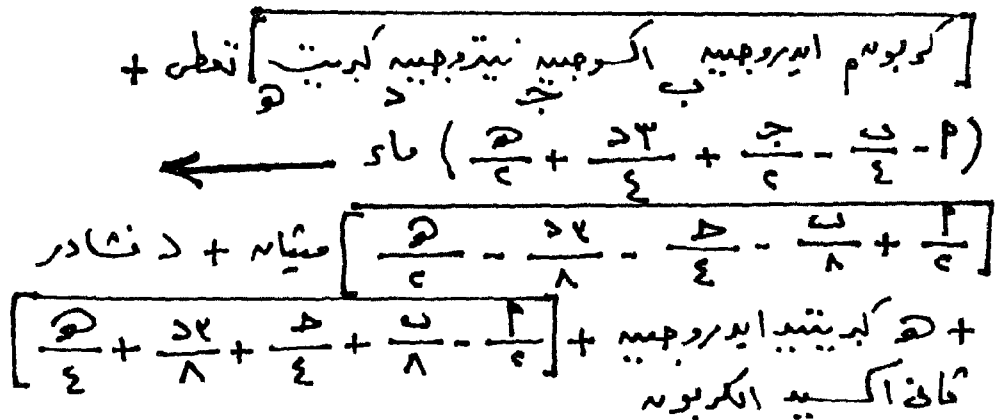 [كربون م ايدروجين ب اكسوجين جـ نيتروجين د كبريت هـ] تعطى +
(م - ب/٤ - جـ/٢ + ٣د/٤ + هـ/٢) ماء ←
[م/٢ + ب/٨ - جـ/٤ - ٣د/٨ - هـ/٢] ميثان + د نشادر
+ هـ كبريتيد ايدروجين + [م/٢ - ب/٨ + جـ/٤ + ٣د/٨ + هـ/٤]
ثانى اكسيد الكربون